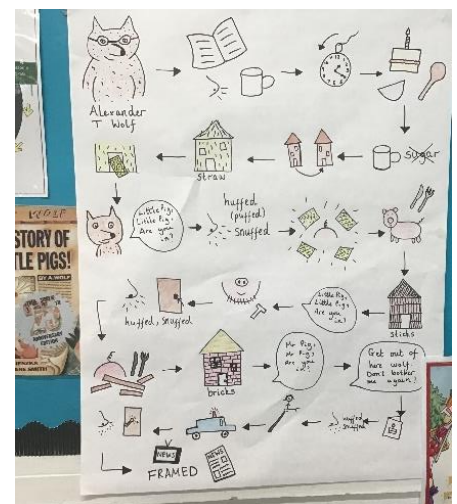 Alexander
T Wolf
sugar
straw
Little Pig,
Little Pig,
Are you
in?
huffed
(puffed)
snuffed
Little Pig,
Little Pig,
Are you
in?
sticks
huffed, snuffed
bricks
Mr Pig,
Mr Pig,
Are you
in?
Get out of
here wolf.
Don't bother
me again!
huffed
snuffed
NEWS
NEWS
FRAMED
WOLF
STORY OF
LE PIGS!
BY A. WOLF
ANNIVERSARY
EDITION